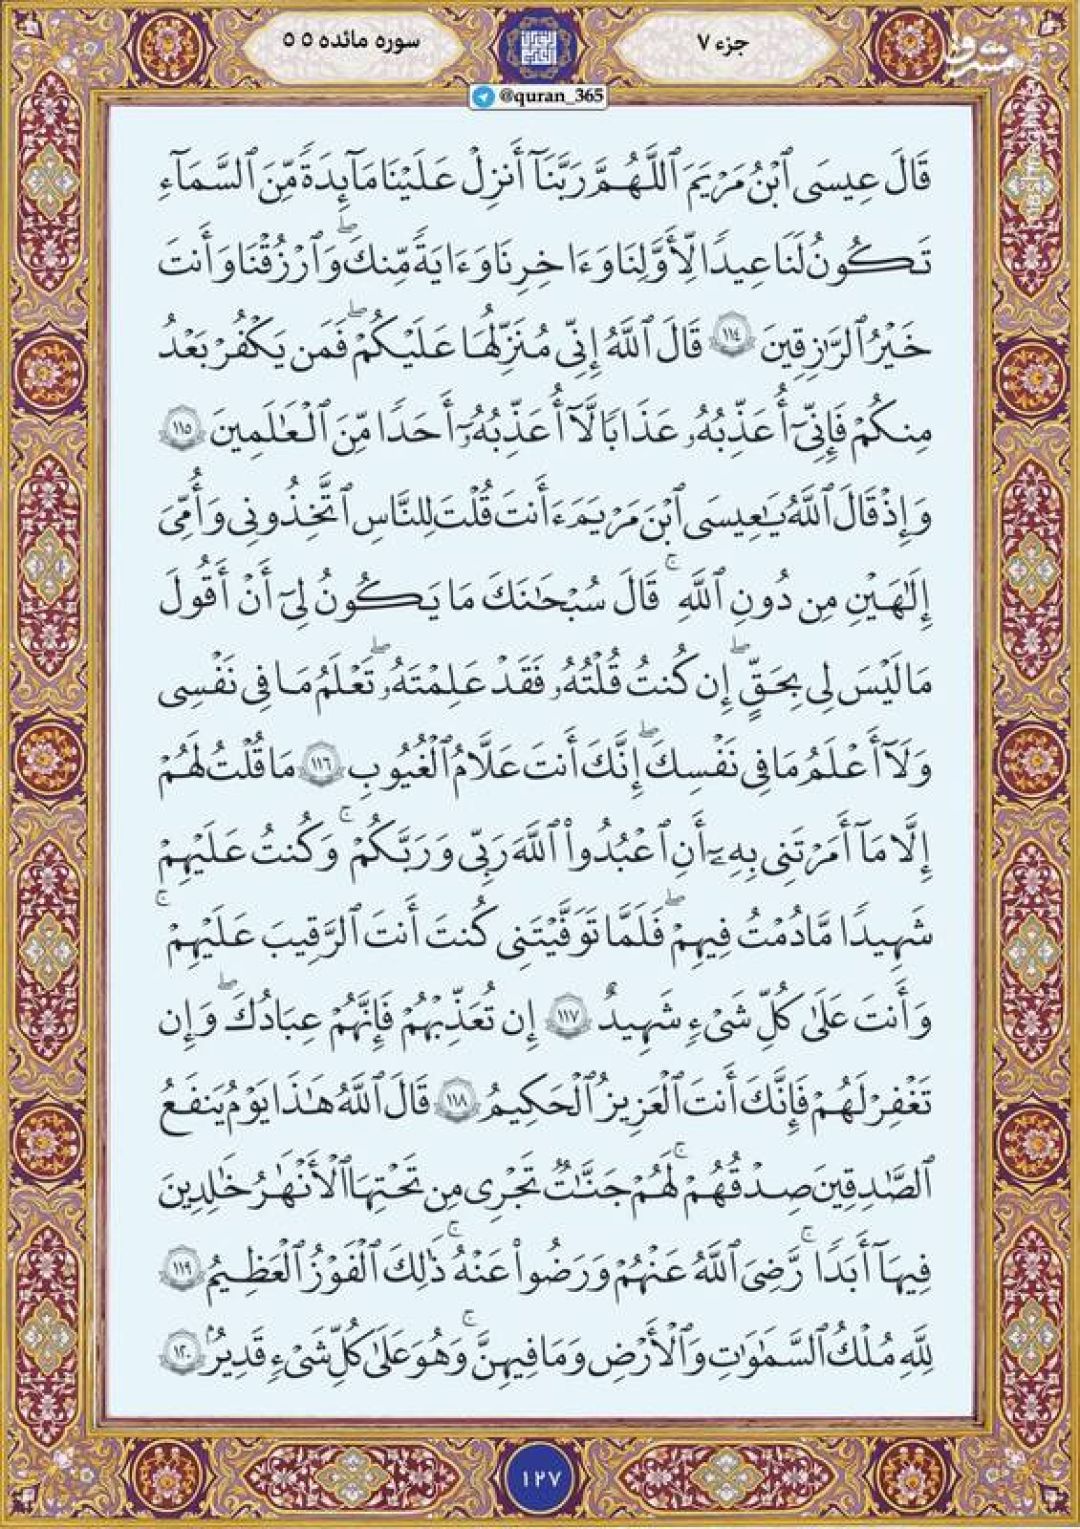 جزء ٧
سوره مائده ٥ ٥
@quran_365
قَالَ عِيسَى ٱبْنُ مَرْيَمَ ٱللَّهُمَّ رَبَّنَآ أَنزِلْ عَلَيْنَا مَآئِدَةً مِّنَ ٱلسَّمَآءِ
تَكُونُ لَنَا عِيدًا لِّأَوَّلِنَا وَءَاخِرِنَا وَءَايَةً مِّنكَ ۖ وَٱرْزُقْنَا وَأَنتَ
خَيْرُ ٱلرَّٰزِقِينَ ١١٤ قَالَ ٱللَّهُ إِنِّى مُنَزِّلُهَا عَلَيْكُمْ ۖ فَمَن يَكْفُرْ بَعْدُ
مِنكُمْ فَإِنِّىٓ أُعَذِّبُهُۥ عَذَابًا لَّآ أُعَذِّبُهُۥٓ أَحَدًا مِّنَ ٱلْعَٰلَمِينَ ١١٥
وَإِذْ قَالَ ٱللَّهُ يَٰعِيسَى ٱبْنَ مَرْيَمَ ءَأَنتَ قُلْتَ لِلنَّاسِ ٱتَّخِذُونِى وَأُمِّىَ
إِلَٰهَيْنِ مِن دُونِ ٱللَّهِ ۚ قَالَ سُبْحَٰنَكَ مَا يَكُونُ لِىٓ أَنْ أَقُولَ
مَا لَيْسَ لِى بِحَقٍّ ۖ إِن كُنتُ قُلْتُهُۥ فَقَدْ عَلِمْتَهُۥ ۖ تَعْلَمُ مَا فِى نَفْسِى
وَلَآ أَعْلَمُ مَا فِى نَفْسِكَ ۖ إِنَّكَ أَنتَ عَلَّامُ ٱلْغُيُوبِ ١١٦ مَا قُلْتُ لَهُمْ
إِلَّا مَآ أَمَرْتَنِى بِهِۦٓ أَنِ ٱعْبُدُوا۟ ٱللَّهَ رَبِّى وَرَبَّكُمْ ۚ وَكُنتُ عَلَيْهِمْ
شَهِيدًا مَّا دُمْتُ فِيهِمْ ۖ فَلَمَّا تَوَفَّيْتَنِى كُنتَ أَنتَ ٱلرَّقِيبَ عَلَيْهِمْ ۚ
وَأَنتَ عَلَىٰ كُلِّ شَىْءٍ شَهِيدٌ ١١٧ إِن تُعَذِّبْهُمْ فَإِنَّهُمْ عِبَادُكَ ۖ وَإِن
تَغْفِرْ لَهُمْ فَإِنَّكَ أَنتَ ٱلْعَزِيزُ ٱلْحَكِيمُ ١١٨ قَالَ ٱللَّهُ هَٰذَا يَوْمُ يَنفَعُ
ٱلصَّٰدِقِينَ صِدْقُهُمْ ۚ لَهُمْ جَنَّٰتٌ تَجْرِى مِن تَحْتِهَا ٱلْأَنْهَٰرُ خَٰلِدِينَ
فِيهَآ أَبَدًا ۚ رَّضِىَ ٱللَّهُ عَنْهُمْ وَرَضُوا۟ عَنْهُ ۚ ذَٰلِكَ ٱلْفَوْزُ ٱلْعَظِيمُ ١١٩
لِلَّهِ مُلْكُ ٱلسَّمَٰوَٰتِ وَٱلْأَرْضِ وَمَا فِيهِنَّ ۚ وَهُوَ عَلَىٰ كُلِّ شَىْءٍ قَدِيرٌۢ ١٢٠
١٢٧